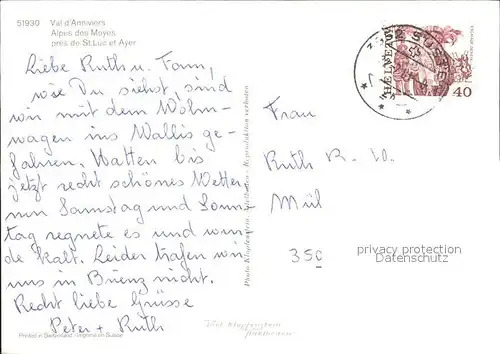 51930 Val d'Anniviers
Alpes des Moyes
près de St.Luc et Ayer
Liebe Ruth u. Fam,
wie Du siehst, sind
wir mit dem Wohn-
wagen ins Wallis ge-
fahren. Hatten bis
jetzt recht schönes Wetter
nur Samstag und Sonn-
tag regnete es und wur-
de kalt. Leider trafen wir
uns in Brienz nicht.
Recht liebe Grüsse
Peter + Ruth
Printed in Switzerland - Imprimé en Suisse
Photo Klopfenstein, Adelboden - Reproduktion verboten
HELVETIA
40
SUSTEN
Frau
Ruth R. W.
Mül
350
privacy protection
Datenschutz
Photo Klopfenstein
Adelboden